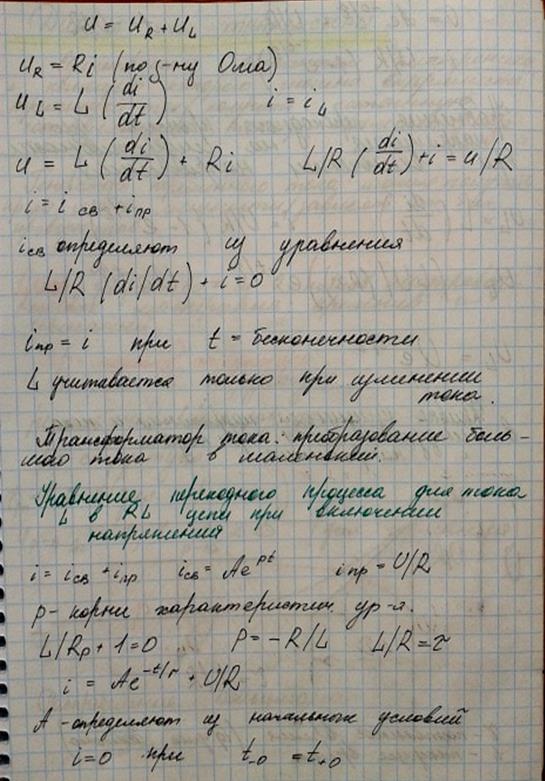 u = u_R + u_L
u_R = Ri (по з-ну Ома)
u_L = L (di/dt) i = i_L
u = L (di/dt) + Ri L/R (di/dt) + i = u/R
i = i св + i пр
i св определяют из уравнения
L/R (di/dt) + i = 0
i пр = i при t = бесконечности
L учитывается только при изменении
тока.
Трансформатор тока: пребразование боль-
шого тока в маленький.
Уравнение переходного процесса для тока
L в RL цепи при включении
напряжения
i = i св + i пр i св = Ae^pt i пр = U/R
p - корни характеристич. ур-я.
L/Rp + 1 = 0 P = -R/L L/R = τ
i = Ae^-t/τ + U/R
A - определяют из начальных условий
i = 0 при t-0 = t+0